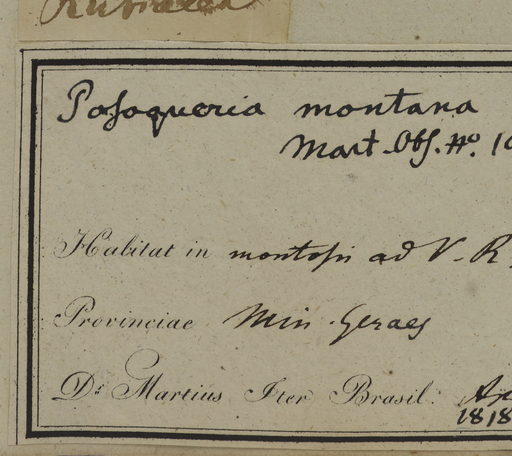 Rubiaceae
Posoqueria montana
Mart. Obs. No.
Habitat in montosis ad V. R
Provinciae Min. Geraes
Dr. Martius Iter Brasil.
1818